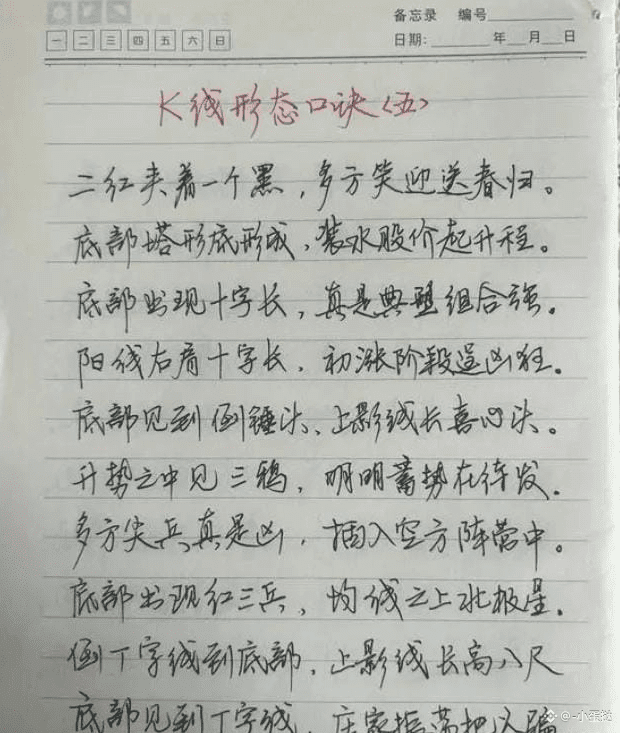 备忘录 编号
一 二 三 四 五 六 日
日期: 年 月 日
K线形态口诀(五)
二红夹着一个黑,多方笑迎送春归。
底部塔形底形成,装水股价起升程。
底部出现十字长,真是典型组合强。
阳线右肩十字长,初涨阶段逞凶狂。
底部见到倒锤头、上影线长喜心头。
升势之中见三鸦,明明蓄势在待发.
多方尖兵真是凶,插入空方阵营中。
底部出现红三兵,均线之上北极星.
倒丁字线到底部,上影线长高八尺
底部见到丁字线,庄家振荡把人骗
小蛋挞